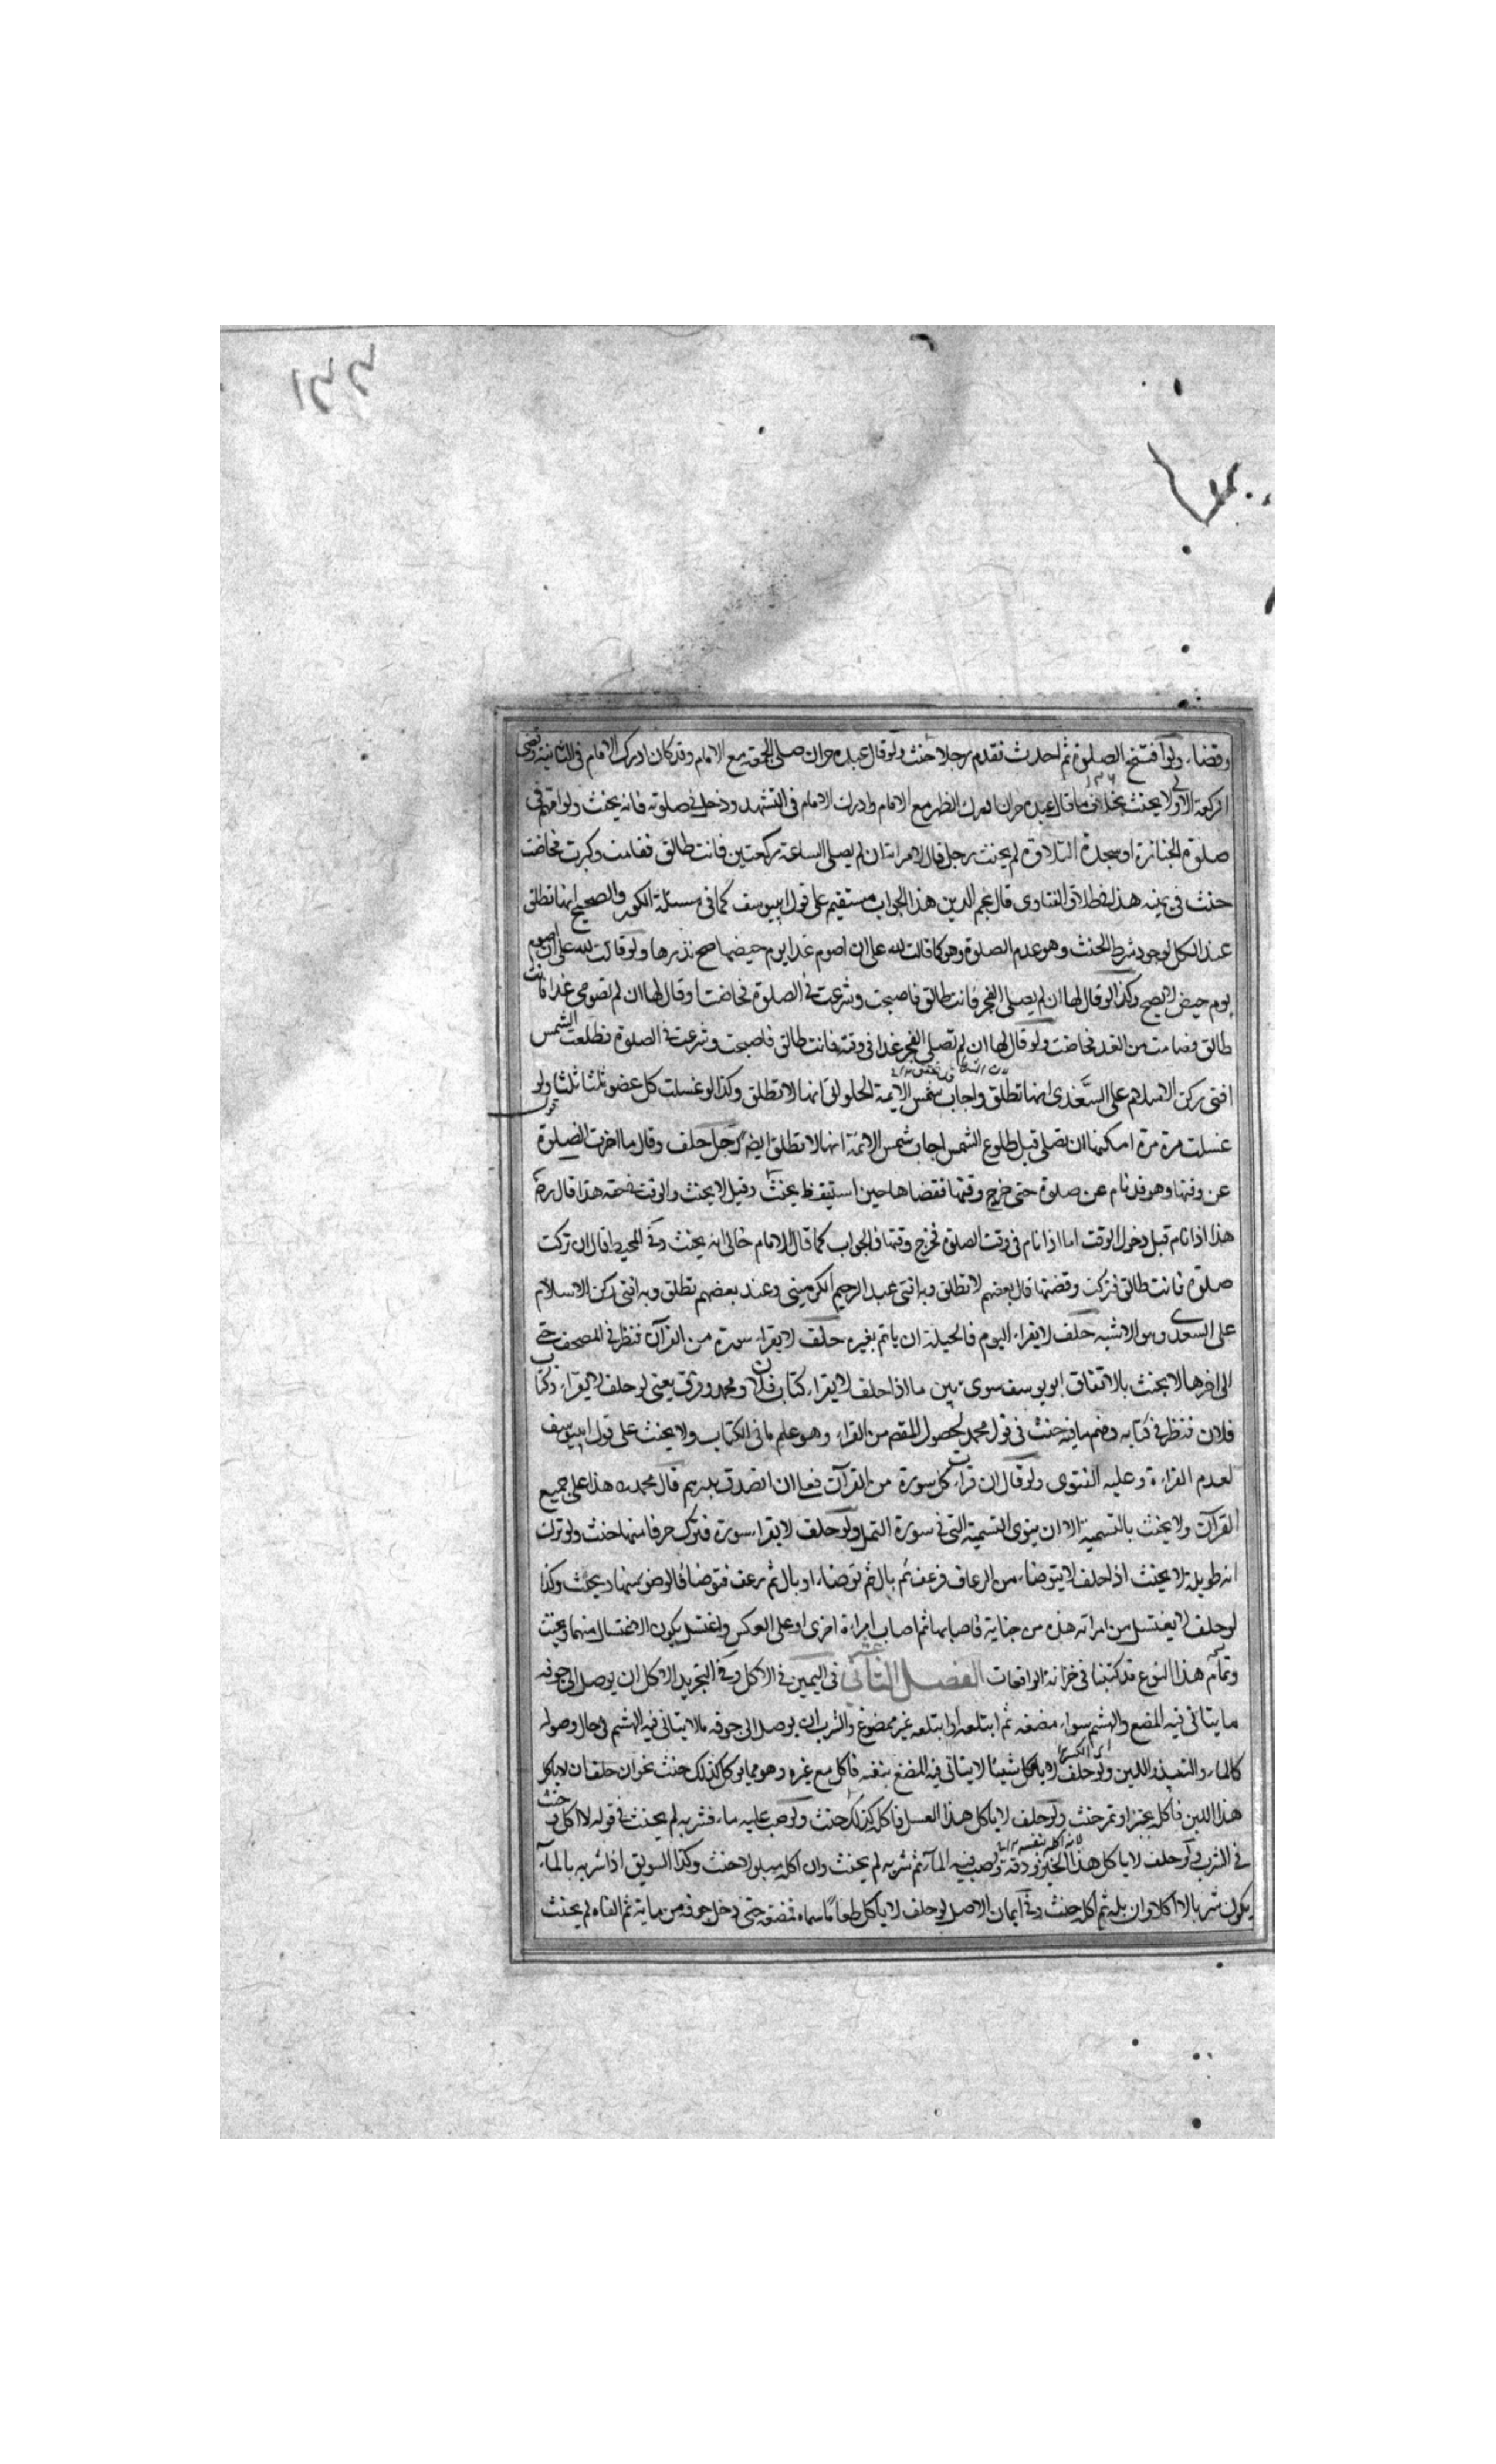 ١٤٤
وقضاء ولو افتتح الصلوة ثم احدث فقدم رجلا حنث ولو قال عبده حر ان صلى الجمعة مع الامام وقد كان ادرك الامام فى الثانية وقضى
الركعة الاولى لا يحنث بخلاف ما قال عبده حر ان ادرك الظهر مع الامام وادرك الامام فى التشهد ودخل فى صلوته فانه يحنث ولو امهم فى
صلوة الجنازة او سجدة التلاوة لم يحنث رجل قال لامراته ان لم يصلى الساعة ركعتين فانت طالق فقامت وكبرت فحاضت
حنث فى يمينه هذا فى طلاق الفتاوى قال نجم الدين هذا الجواب مستقيم على قول ابييوسف كما فى مسئلة الكوز والصحيح انها تطلق
عند الكل لوجود شرط الحنث وهو عدم الصلوة وهو كما قالت لله على ان اصوم غدا يوم حيضها صح نذرها ولو قالت لله على ان اصوم
يوم حيض لا يصح وكذا لو قال لها ان لم يصلى الفجر فانت طالق فاصبحت وشرعت فى الصلوة فحاضت او قال لها ان لم تصومى غدا فانت
طالق فصامت من الغد فحاضت ولو قال لها ان لم تصلى الفجر غدا فى وقته فانت طالق فاصبحت وشرعت فى الصلوة فطلعت الشمس
افتى ركن الاسلام على السغدى انها تطلق واجاب شمس الايمة الحلوانى انها لا تطلق وكذا لو غسلت كل عضو ثلثا ثلثا ولو
غسلت مرة مرة امكنها ان تصلى قبل طلوع الشمس اجاب شمس الائمة انها لا تطلق ايضا رجل حلف وقال ما اخرت الصلوة
عن وقتها وهو قد نام عن صلوة حتى خرج وقتها فقضاها حين استيقظ يحنث وقيل لا يحنث والوقت فى حقه هذا قال رضه
هذا اذا نام قبل دخول الوقت اما اذا نام فى وقت الصلوة فخرج وقتها فالجواب كما قال الامام خالى انه يحنث وفى المحيط قال ان تركت
صلوة فانت طالق فتركت وقضتها قال بعضهم لا تطلق وبه افتى عبد الرحيم الكرمينى وعند بعضهم تطلق وبه افتى ركن الاسلام
على السغدى وهو الاشبه حلف لا يقراء اليوم فالحيلة ان ياتم بغيره حلف لا يقراء سورة من القرآن فنظر فى المصحف حتى
الى اخرها لا يحنث بالاتفاق ابو يوسف سوى بين ما اذا حلف لا يقراء كتاب فلان ومحمد فرق يعنى لو حلف لا يقراء كتاب
فلان فنظر فى كتابه وفهم ما فيه حنث فى قول محمد لحصول المقصد من القراء وهو علم ما فى الكتاب ولا يحنث على قول ابييوسف
لعدم القراءة وعليه الفتوى ولو قال ان قرات كل سورة من القرآن فعلى ان اتصدق بدرهم قال محمد ره هذا على جميع
القرآن ولا يحنث بالتسمية الا ان ينوى التسمية التى فى سورة النمل ولو حلف لا يقراء سورة فترك حرفا منها حنث ولو ترك
اية طويلة لا يحنث اذا حلف لا يتوضاء من الرعاف فرعف ثم بال ثم توضاء او بال ثم رعف فتوضا فالوضوء منهما ويحنث وكذا
لو حلف لا يغتسل من امراته هذه من جنابة فاصابها ثم اصاب امراة اخرى او على العكس واغتسل يكون الاغتسال منهما ويحنث
وتمام هذا النوع قد كتبنا فى خزانة الواقعات الفصل الثانى عشر فى اليمين فى الاكل وفى التجريد الاكل ان يوصل الى جوفه
ما يتاتى فيه المضغ والهشم سواء مضغه ثم ابتلعه او ابتلعه غير ممضوغ والشرب ان يوصل الى جوفه ما لا يتاتى فيه الهشم فى حال وصوله
كالماء والنبيذ واللبن ولو حلف لا ياكل شيئا لا يتاتى فيه المضغ بنفسه فاكل مع غيره وهو مما يوكل كذلك حنث نحو ان حلف ان لا ياكل
هذا اللبن فاكله بخبز او تمر حنث ولو حلف لا ياكل هذا العسل فاكله كذلك حنث ولو صب عليه ماء فشربه لم يحنث فى قوله لا اكل وحنث
فى الشرب ولو حلف لا ياكل هذا الخبز فدقه وصب فيه المآء ثم شربه لم يحنث وان اكله مبلولا حنث وكذا السويق اذا شربه بالمآء
يكون شربا لا اكلا وان بله ثم اكله حنث وفى ايمان الاصل لو حلف لا ياكل طعاما سماه فمضغه حتى دخل جوفه من مايه ثم القاه لم يحنث